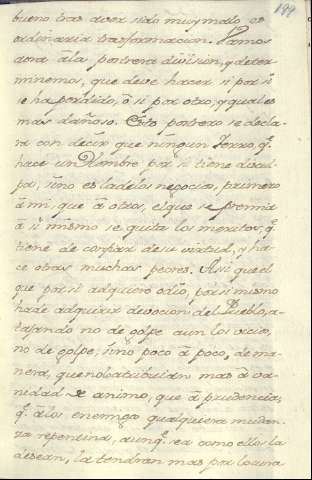 199
bueno tras aver sido muy malo es
ordinaria trasformacion. Vamos
aora à la postrera division, y deter
minemos, que deve hacer si por si
se ha perdido, ò si por otro, y qual es
mas dañoso. Esto postrero se decla
ra con decir que ningun yerro, q.e
hace un Hombre por si tiene discul
pa, sino es la de los negocios, primero
à mi, que à otros, el que se premia
à si mismo se quita los meritos, q.e
tiene de confiar de su virtud, y ha
ce otras muchas peores. Asi que el
que por si adquirio odio, por si mismo
ha de adquirir devocion del Pueblo, a
tajando no de golpe aun los vicios,
no de golpe, sino poco à poco, de ma
nera, que no lo atribuian mas à va
nidad de animo, que à prudencia;
q.e à los enemigos qualquiera mudan
za repentina, aunq.e sea como ellos la
desean, la tendran mas por locura